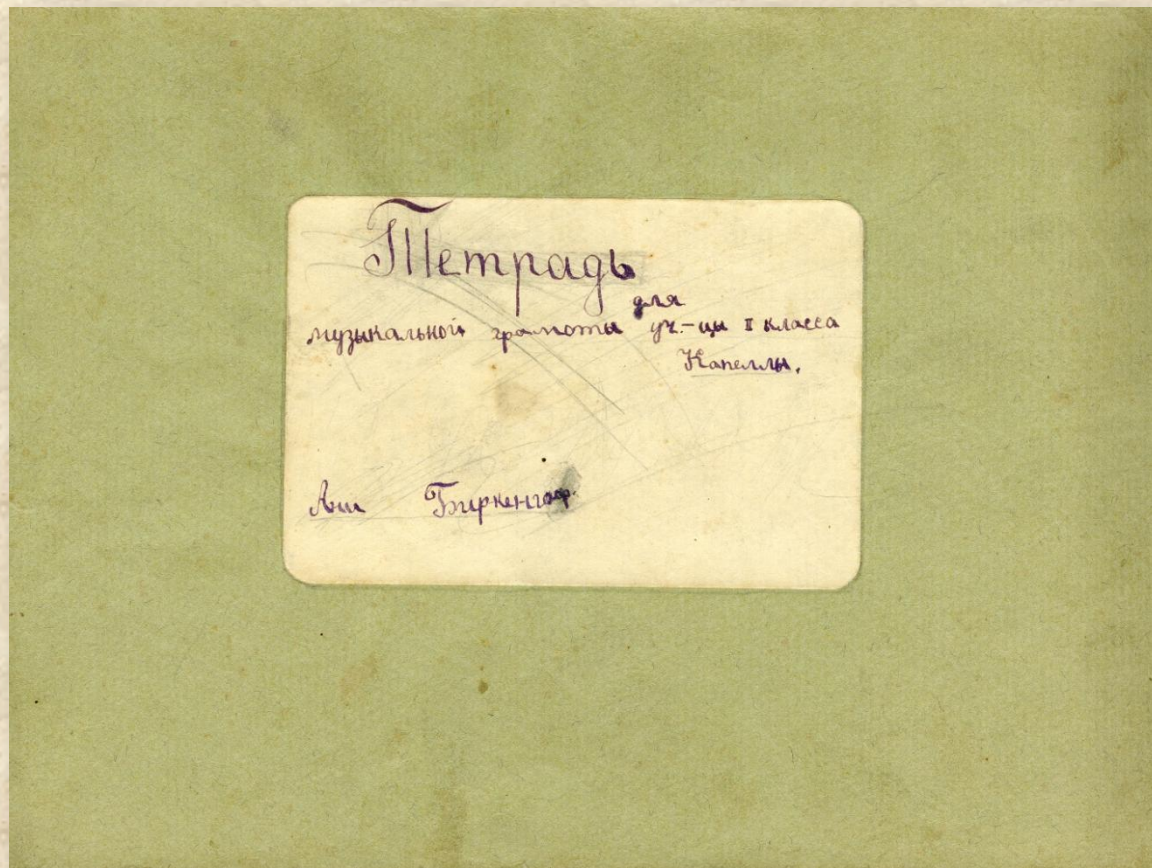 Тетрадь
для
музыкальной грамоты уч.-цы II класса
Капеллы.
Ани Биркенгоф.